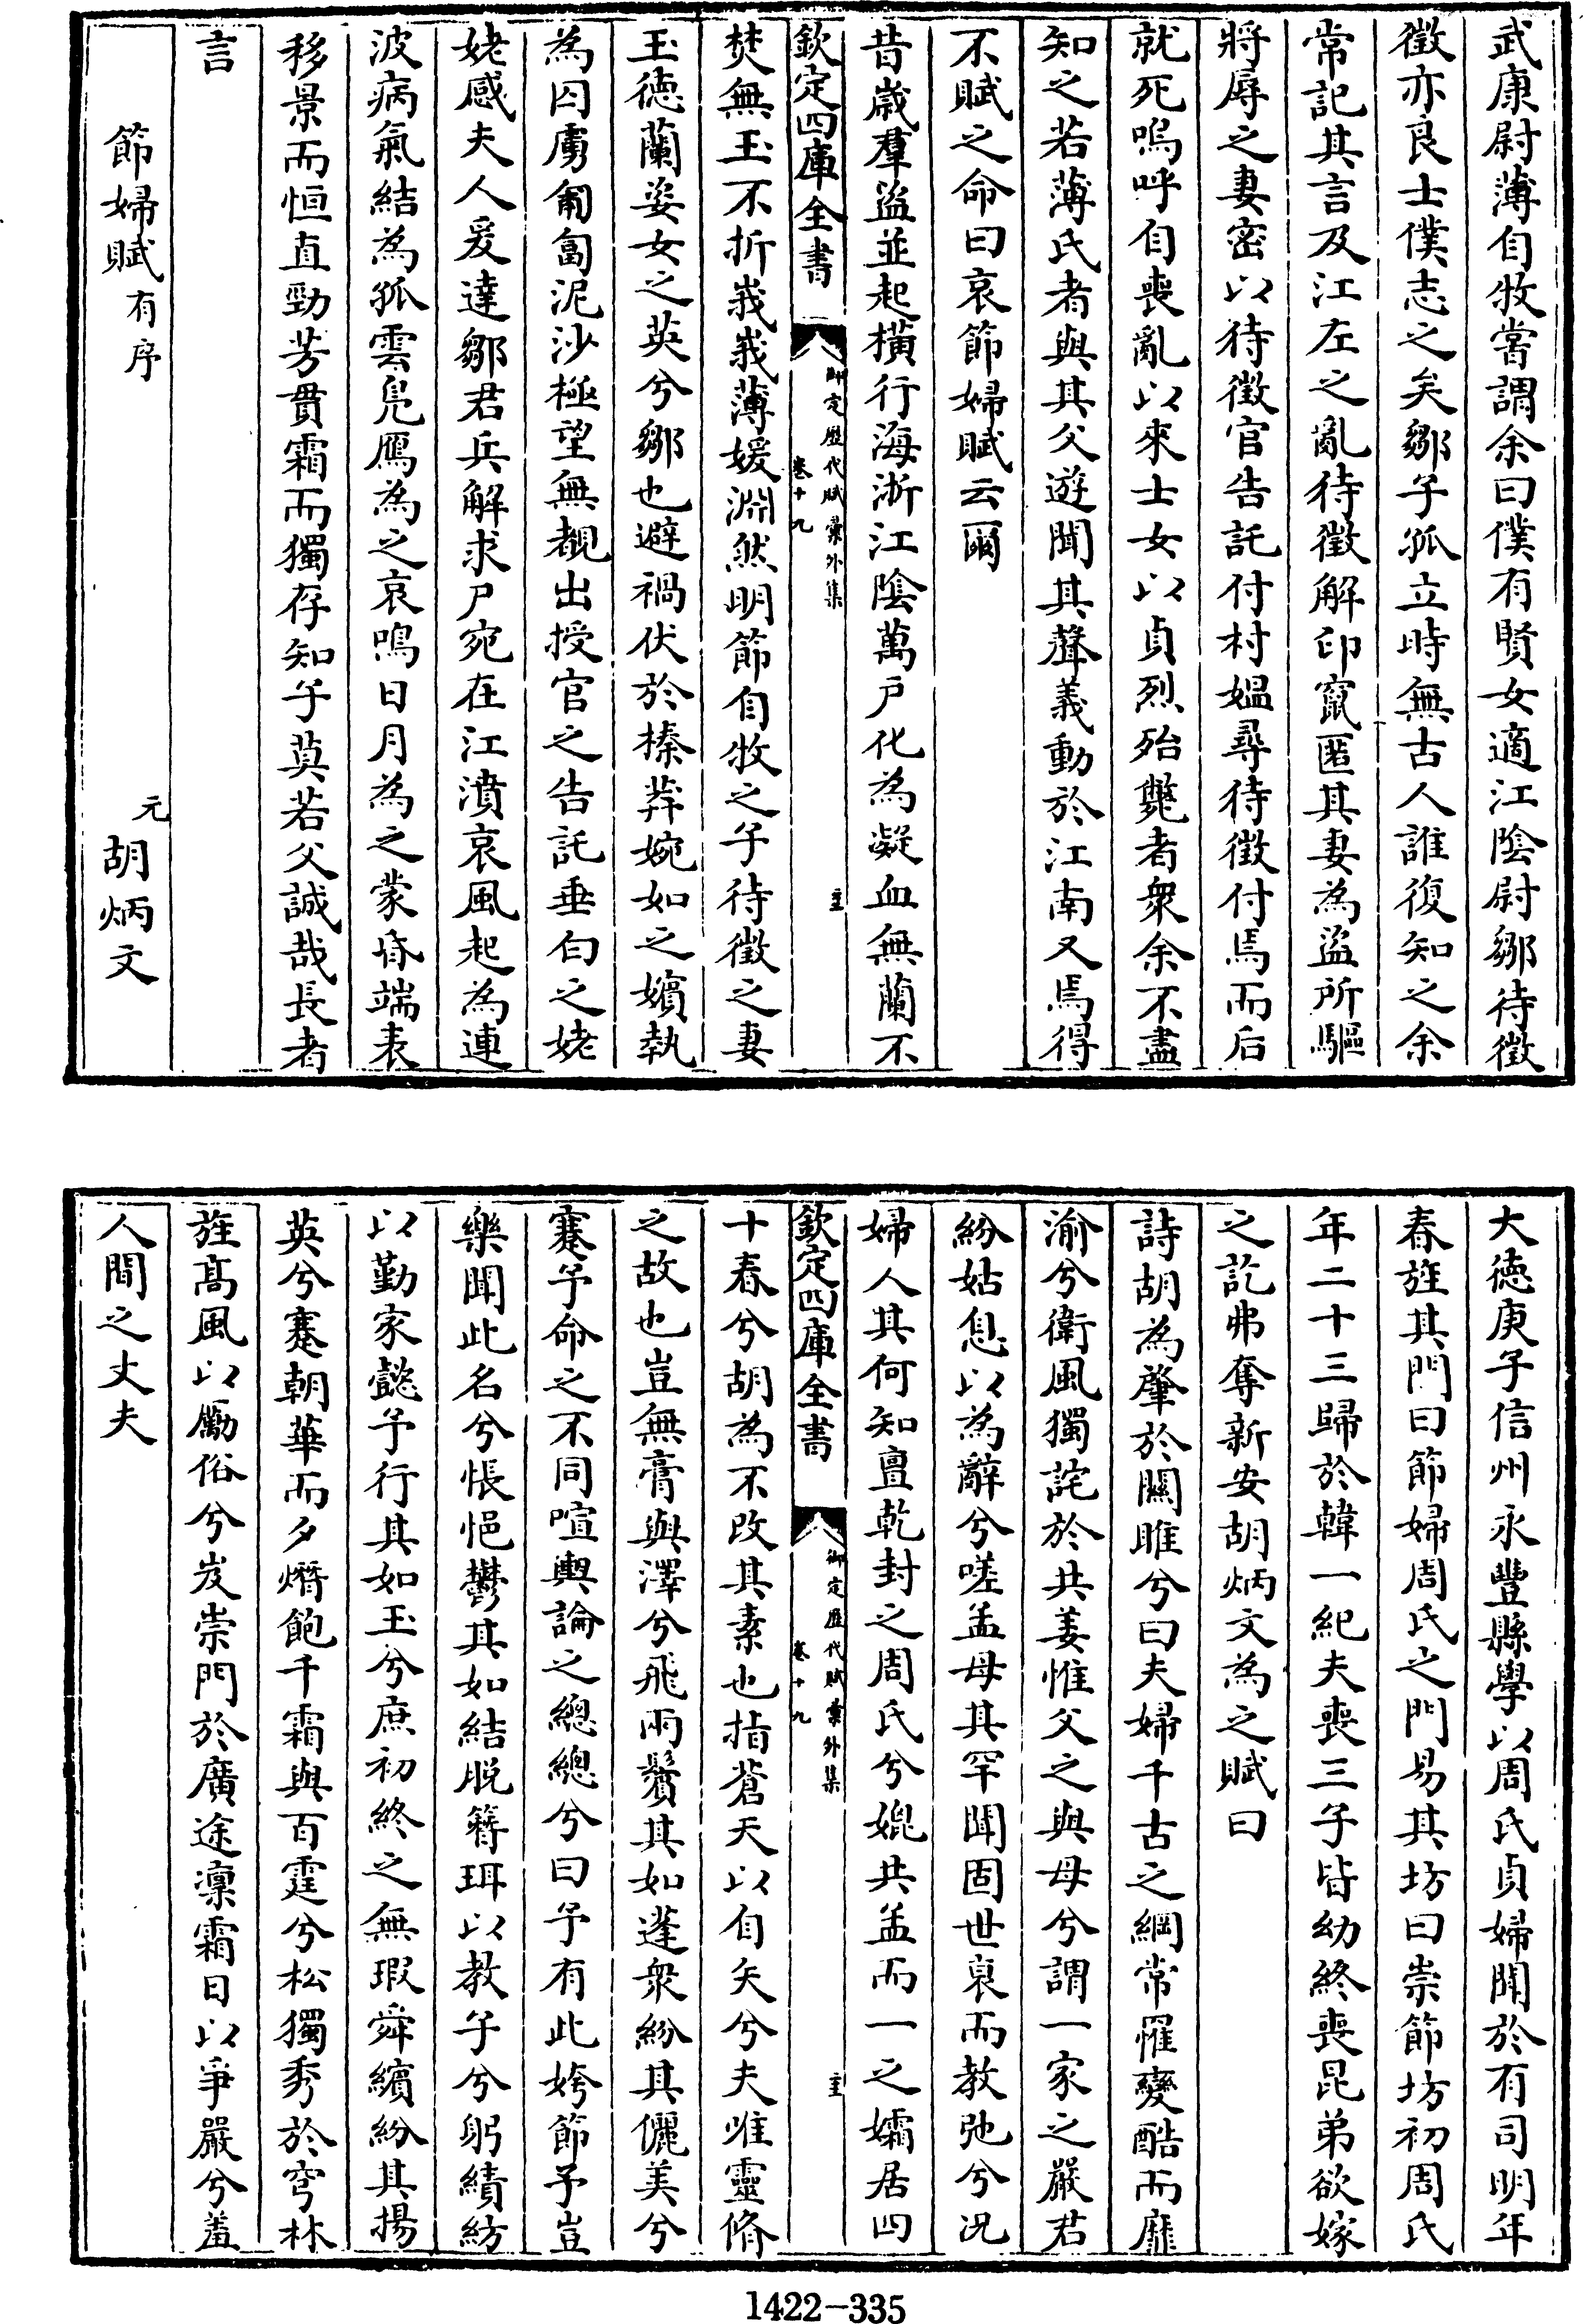 武康尉薄自牧嘗謂余曰僕有賢女適江陰尉鄒待徵
徵亦良士僕志之矣鄒子孤立時無古人誰復知之余
常記其言及江左之亂待徵解印竄匿其妻為盜所驅
將辱之妻密以待徵官告託付村媼尋待徵付焉而后
就死嗚呼自喪亂以來士女以貞烈殆斃者衆余不盡
知之若薄氏者與其父遊聞其聲義動於江南又焉得
不賦之命曰哀節婦賦云爾
昔歲羣盜並起橫行海浙江陰萬戶化為凝血無蘭不
欽定四庫全書
御定歷代賦彙外集
卷十九
焚無玉不折峩峩薄媛淵然明節自牧之子待徵之妻
玉德蘭姿女之英兮鄒也避禍伏於榛莽婉如之嬪執
為囚虜匍匐泥沙極望無覩出授官之告託垂白之姥
姥感夫人爰達鄒君兵解求尸宛在江濆哀風起為連
波病氣結為孤雲鳧鴈為之哀鳴日月為之蒙昏端表
移景而恒直勁芳貫霜而獨存知子莫若父誠哉長者
言
節婦賦有序
元 胡炳文
大德庚子信州永豐縣學以周氏貞婦聞於有司明年
春旌其門曰節婦周氏之門易其坊曰崇節坊初周氏
年二十三歸於韓一紀夫喪三子皆幼終喪昆弟欲嫁
之訖弗奪新安胡炳文為之賦曰
詩胡為肇於關雎兮曰夫婦千古之綱常罹變酷而靡
渝兮衛風獨詫於共姜惟父之與母兮謂一家之嚴君
紛姑息以為辭兮嗟孟母其罕聞固世衰而教弛兮况
婦人其何知亶乾封之周氏兮媲共孟而一之孀居四
欽定四庫全書
御定歷代賦彙外集
卷十九
十春兮胡為不改其素也指蒼天以自矢兮夫唯靈脩
之故也豈無膏與澤兮飛雨鬢其如蓬衆紛其儷美兮
蹇予命之不同喧輿論之總總兮曰予有此姱節予豈
樂聞此名兮悵悒鬱其如結脫簪珥以教子兮躬績紡
以勤家懿予行其如玉兮庶初終之無瑕舜繽紛其揚
英兮蹇朝華而夕熸飽千霜與百霆兮松獨秀於穹林
旌髙風以勵俗兮岌崇門於廣途凜霜日以爭嚴兮羞
人間之丈夫
1422-335